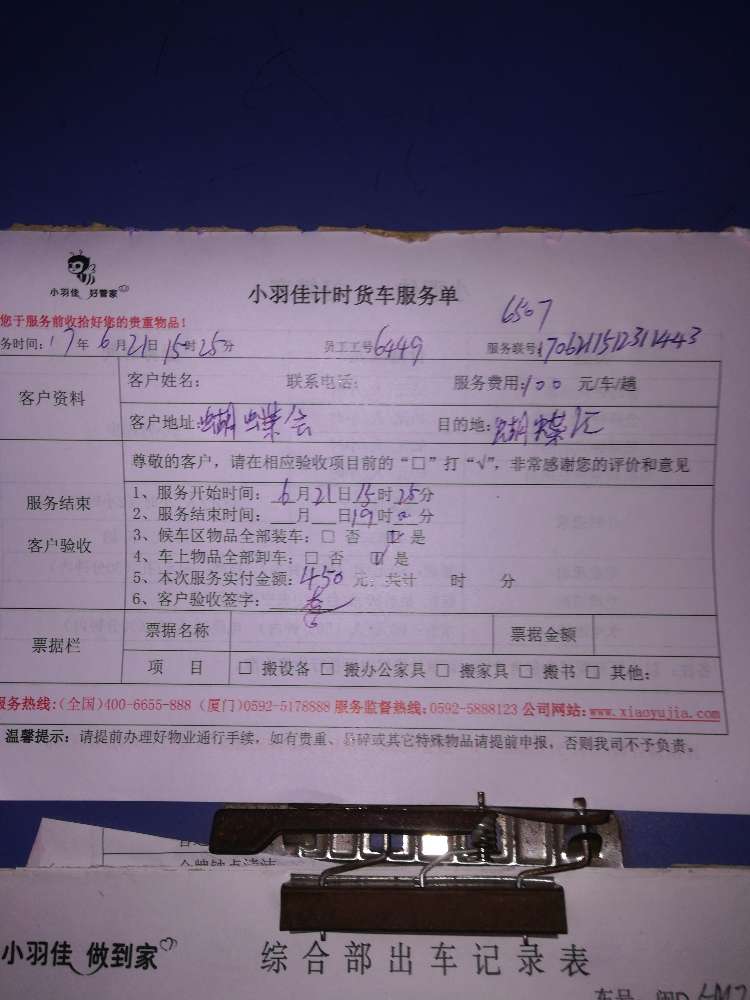 小羽佳 好管家
小羽佳计时货车服务单
6507
您于服务前收拾好您的贵重物品!
务时间:17年6月21日15时25分 员工工号6449 服务联号:170621151231443
客户资料
客户姓名: 联系电话: 服务费用:100 元/车/趟
客户地址:蝴蝶会 目的地:蝴蝶汇
尊敬的客户,请在相应验收项目前的“□”打“√”,非常感谢您的评价和意见
服务结束
客户验收
1、服务开始时间:6月21日15时25分
2、服务结束时间:___月___日19时 分
3、候车区物品全部装车:□ 否 ☑ 是
4、车上物品全部卸车:□ 否 ☑ 是
5、本次服务实付金额:450元,共计 时 分
6、客户验收签字:
票据栏
票据名称 票据金额
项 目 □ 搬设备 □ 搬办公家具 □ 搬家具 □ 搬书 □ 其他:
服务热线:(全国)400-6655-888 (厦门)0592-5178888 服务监督热线:0592-5888123 公司网站:www.xiaoyujia.com
温馨提示:请提前办理好物业通行手续,如有贵重、易碎或其它特殊物品请提前申报,否则我司不予负责。
小羽佳 做到家
综合部出车记录表
车号